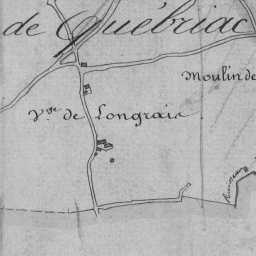 de Québriac
Moulin de
Vge de Longrais